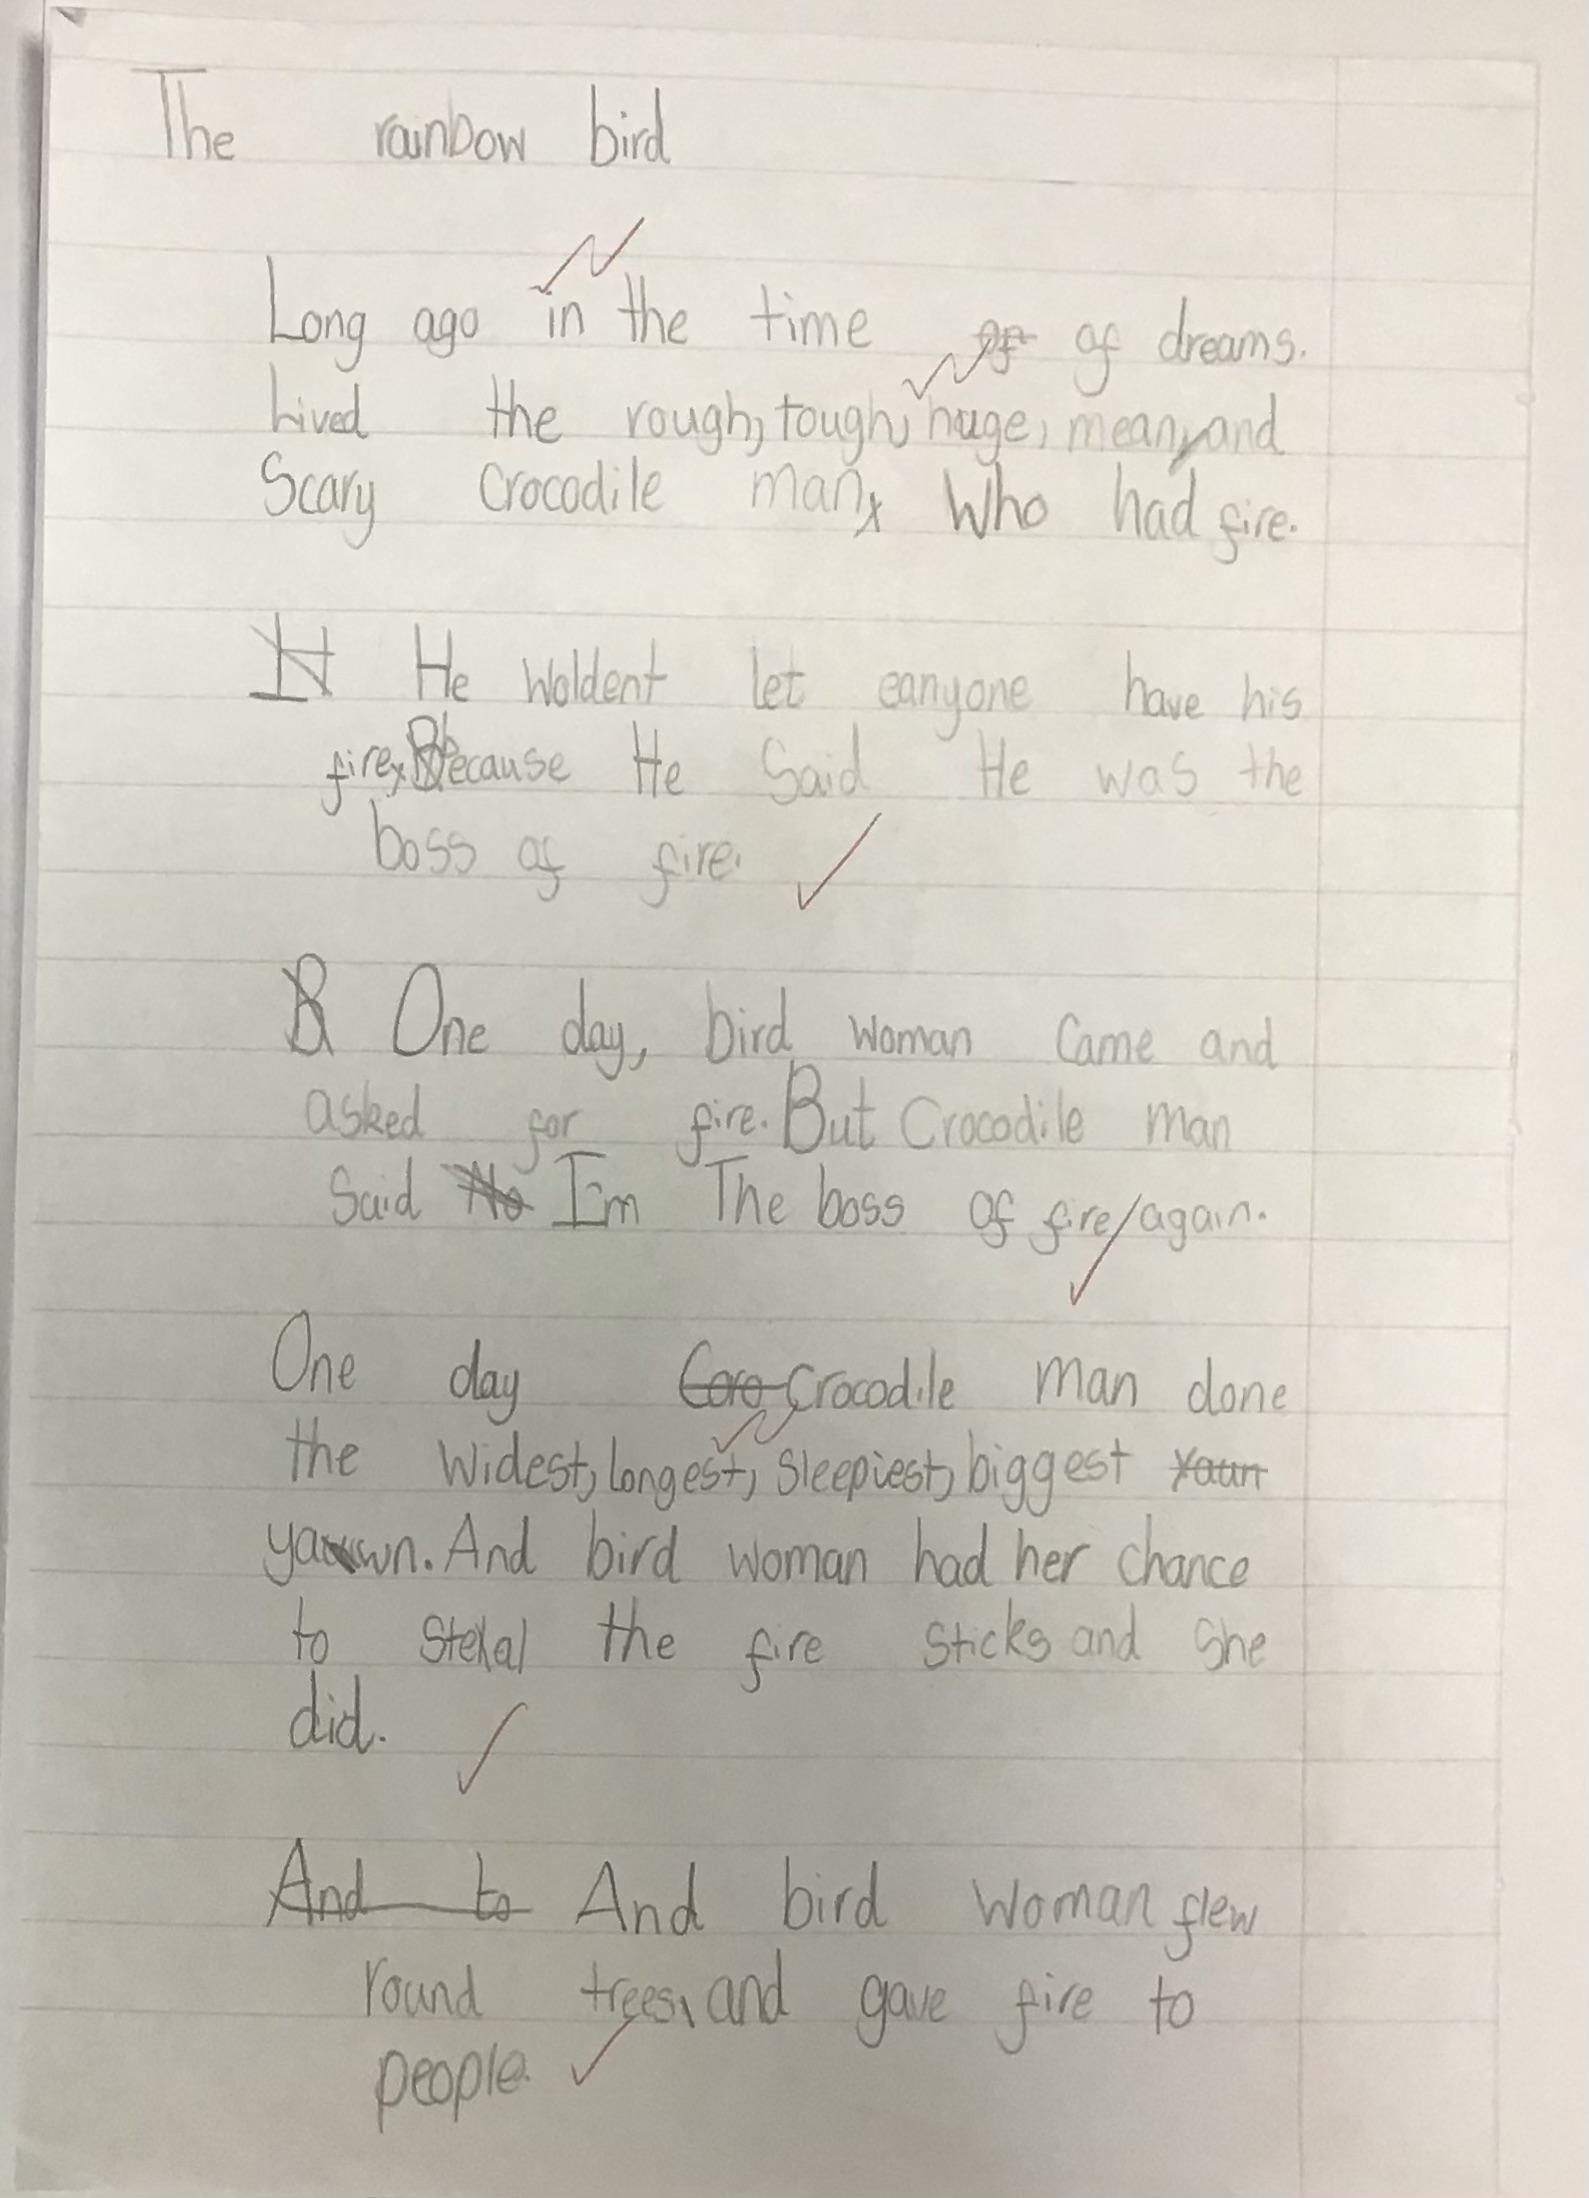 The rainbow bird
Long ago in the time of of dreams.
Lived the rough, tough, huge, mean, and
Scary Crocodile man, Who had fire.
He Woldent let eanyone have his
fire, because He Said He was the
boss of fire.
B One day, bird woman Came and
asked for fire. But Crocodile man
Said No I'm The boss of fire/again.
One day Coro Crocodile man done
the Widest, longest, Sleepiest, biggest Yaun
yawn. And bird woman had her chance
to steal the fire Sticks and She
did.
And to And bird Woman flew
round trees, and gave fire to
people.